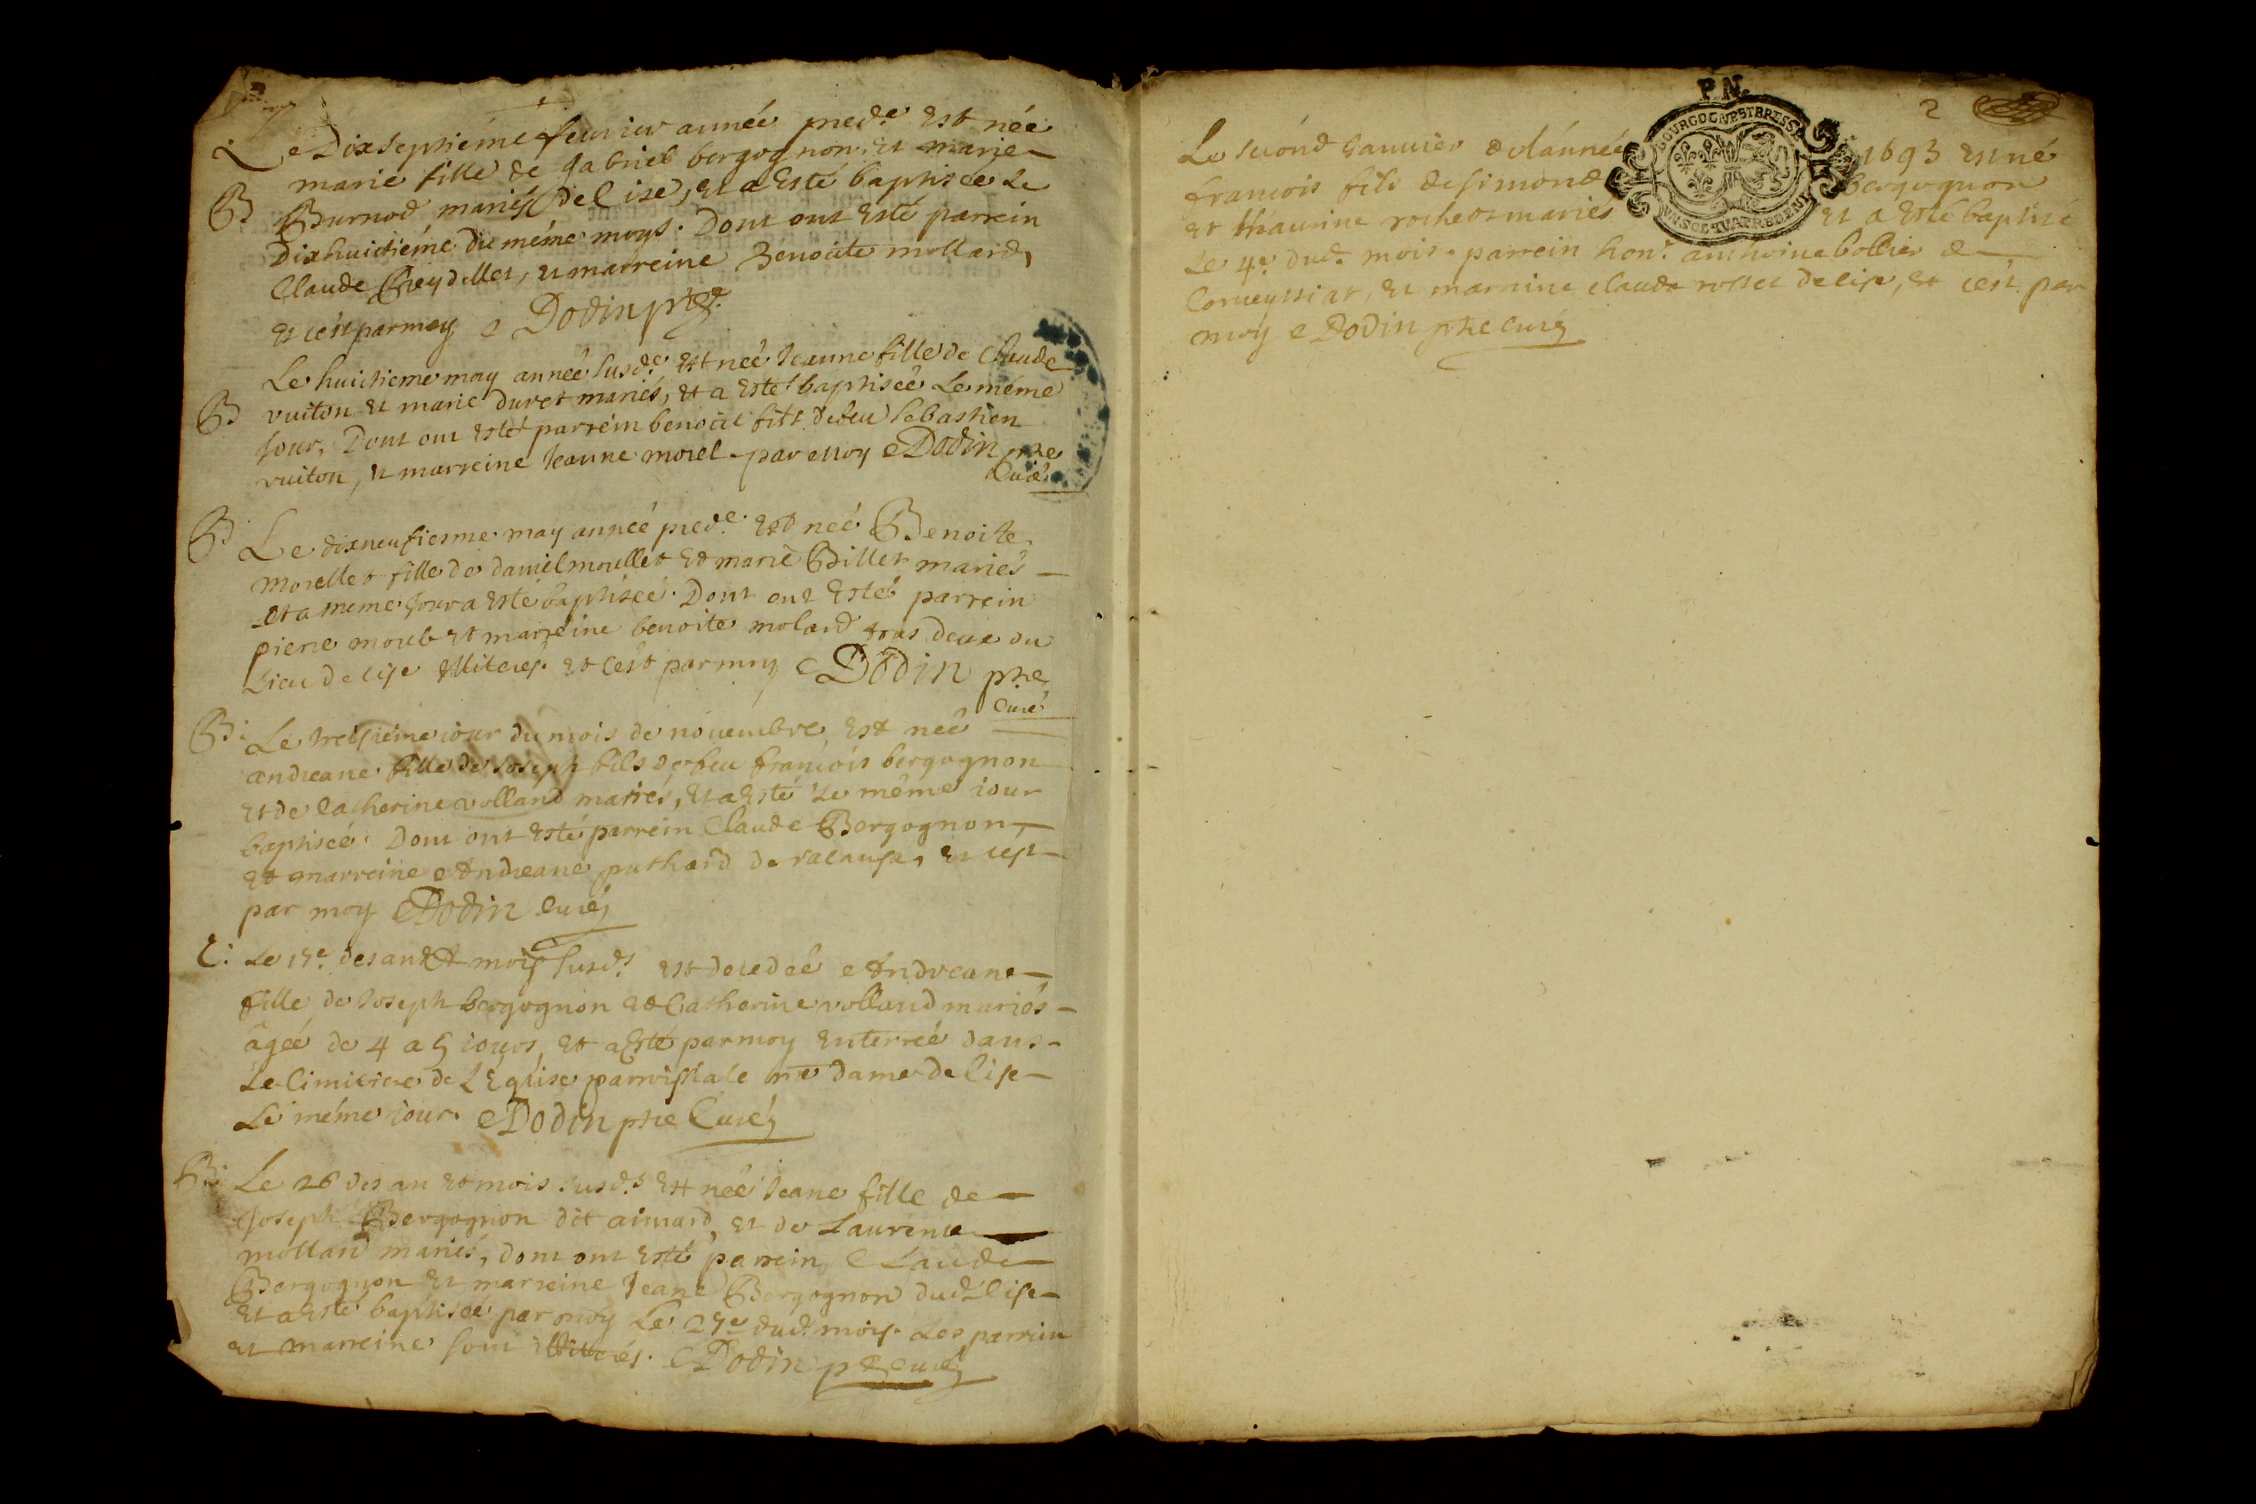 Le Dixseptiéme feuvrier année pred.e est née
marie fille de gabriel bergognon et marie
B Burnod mariés De lise, et a esté baptisée le
Dixhuictiéme du méme moys. Dont ont esté parrein
Claude Greydellet, et marreine Benoite mollard,
et c'est par moy Dodin ptre
Le huictieme may année susd.e est neé Jeanne fille de Claude
B vuiton et marie duret mariés, et a esté baptiseé Le méme
Jour, Dont ont esté parréin benoict fils de feu sebastien
vuiton, et marreine Jeanne morel par moy Dodin ptre
Curé
B Le dixneufiesme may anneé pred.e est neé Benoite
Morellet fille de daniel moullet et marie Billet mariés
et a meme Jour a esté baptiseé. Dont ont esté parrein
pierre morel et marreine benoite molard tous deux du
Lieu de lise illiterés. et c'est par moy Dodin ptre
Curé
B: Le treisiéme iour du mois de nouembre est neé
andreane fille de Joseph fils de feu francois bergognon
et de Catherine volland mariés, et a esté le méme iour
baptiseé. Dont ont esté parréin Claude Bergognon,
et marreine Andreane puthard de et c'est
par moy Dodin Curé
E: Le 17e. des an et mois susd.s est decedeé Andreane
fille de Joseph bergognon et Catherine volland mariés
âgeé de 4 a 5 iours, et a esté par moy enterreé dans
Le Cimitiere de L'Eglise parroissiale nre dame de lise
Le méme iour. Dodin ptre Curé
B: Le 26 des an et mois susd.s est neé Jeane fille de
Joseph Bergognon dit aimard, et de Laurence
mollard mariés, dont ont esté parrein Claude
Bergognon et marreine Jeane Bergognon dud. lise
et a esté baptisée par moy Le 27e dud. mois. Les parrein
et marreine sont illiterés. Dodin ptre curé
P.N.
2
BOURGOGNE ET BRESSE
Le second Januier de l'année 1693 est né
francois fils de simond Bergognon
et thaurine rochet mariés et a esté baptisé
Le 4e. dud. mois. parrein hon. anthoine bollier de
Corueyssiat, et marreine claude rosset de lise, et c'est par
moy Dodin ptre Curé